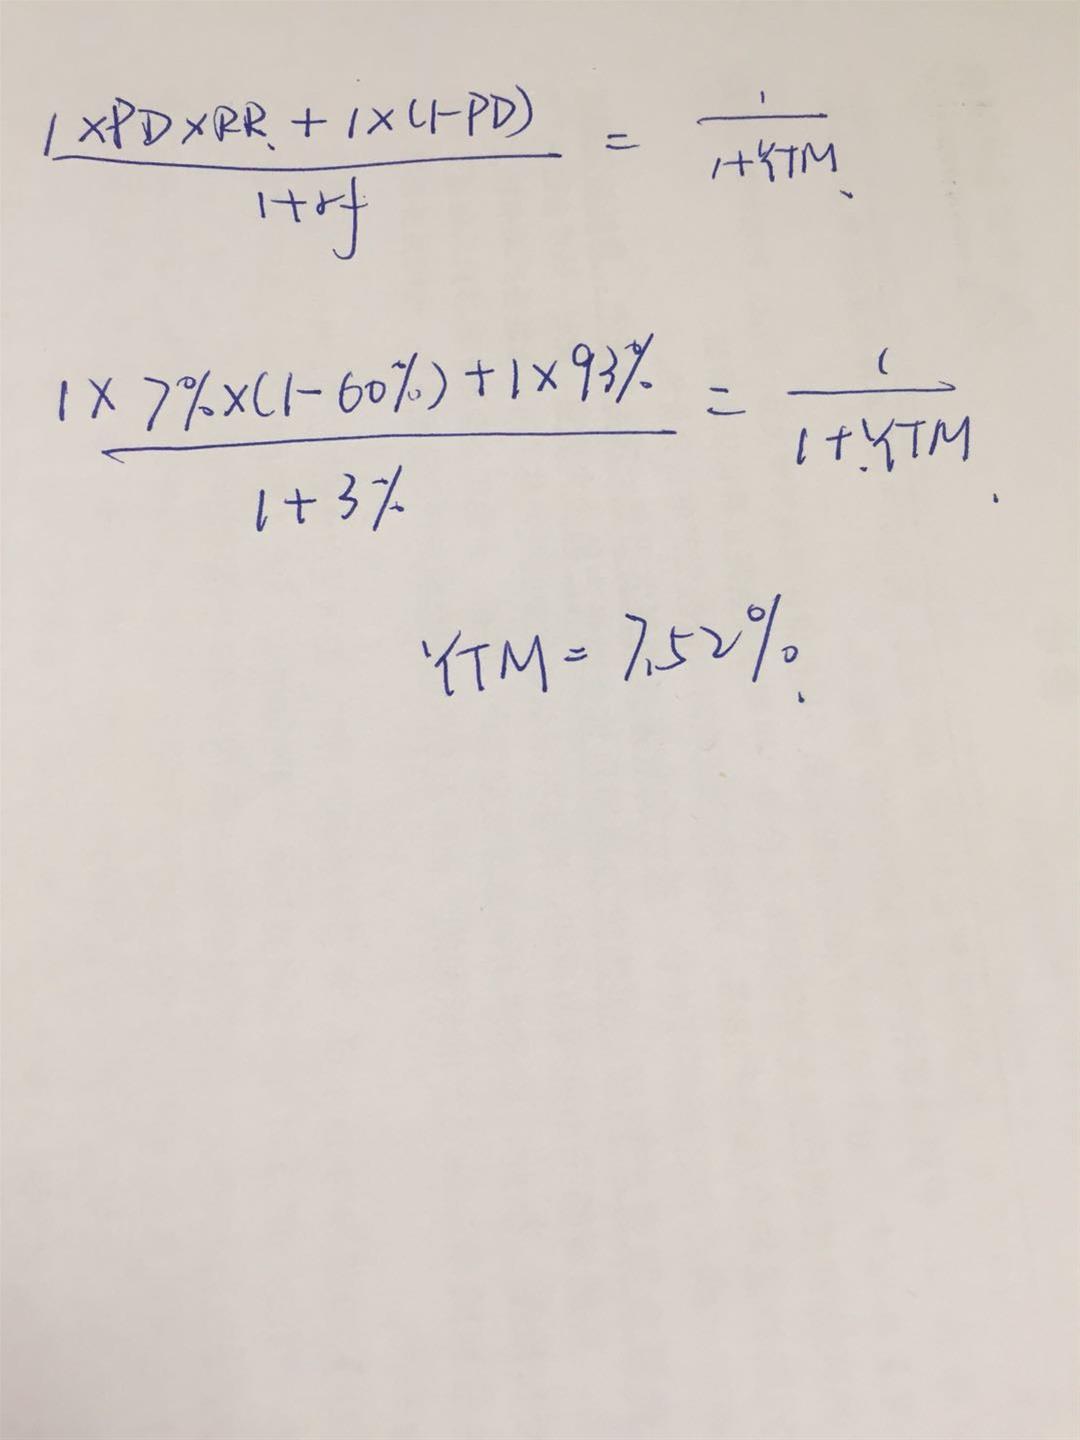 (1×PD×RR + 1×(1-PD))/(1+rf) = 1/(1+YTM)
(1×7%×(1-60%)+1×93%)/(1+3%) = 1/(1+YTM)
YTM=7.52%